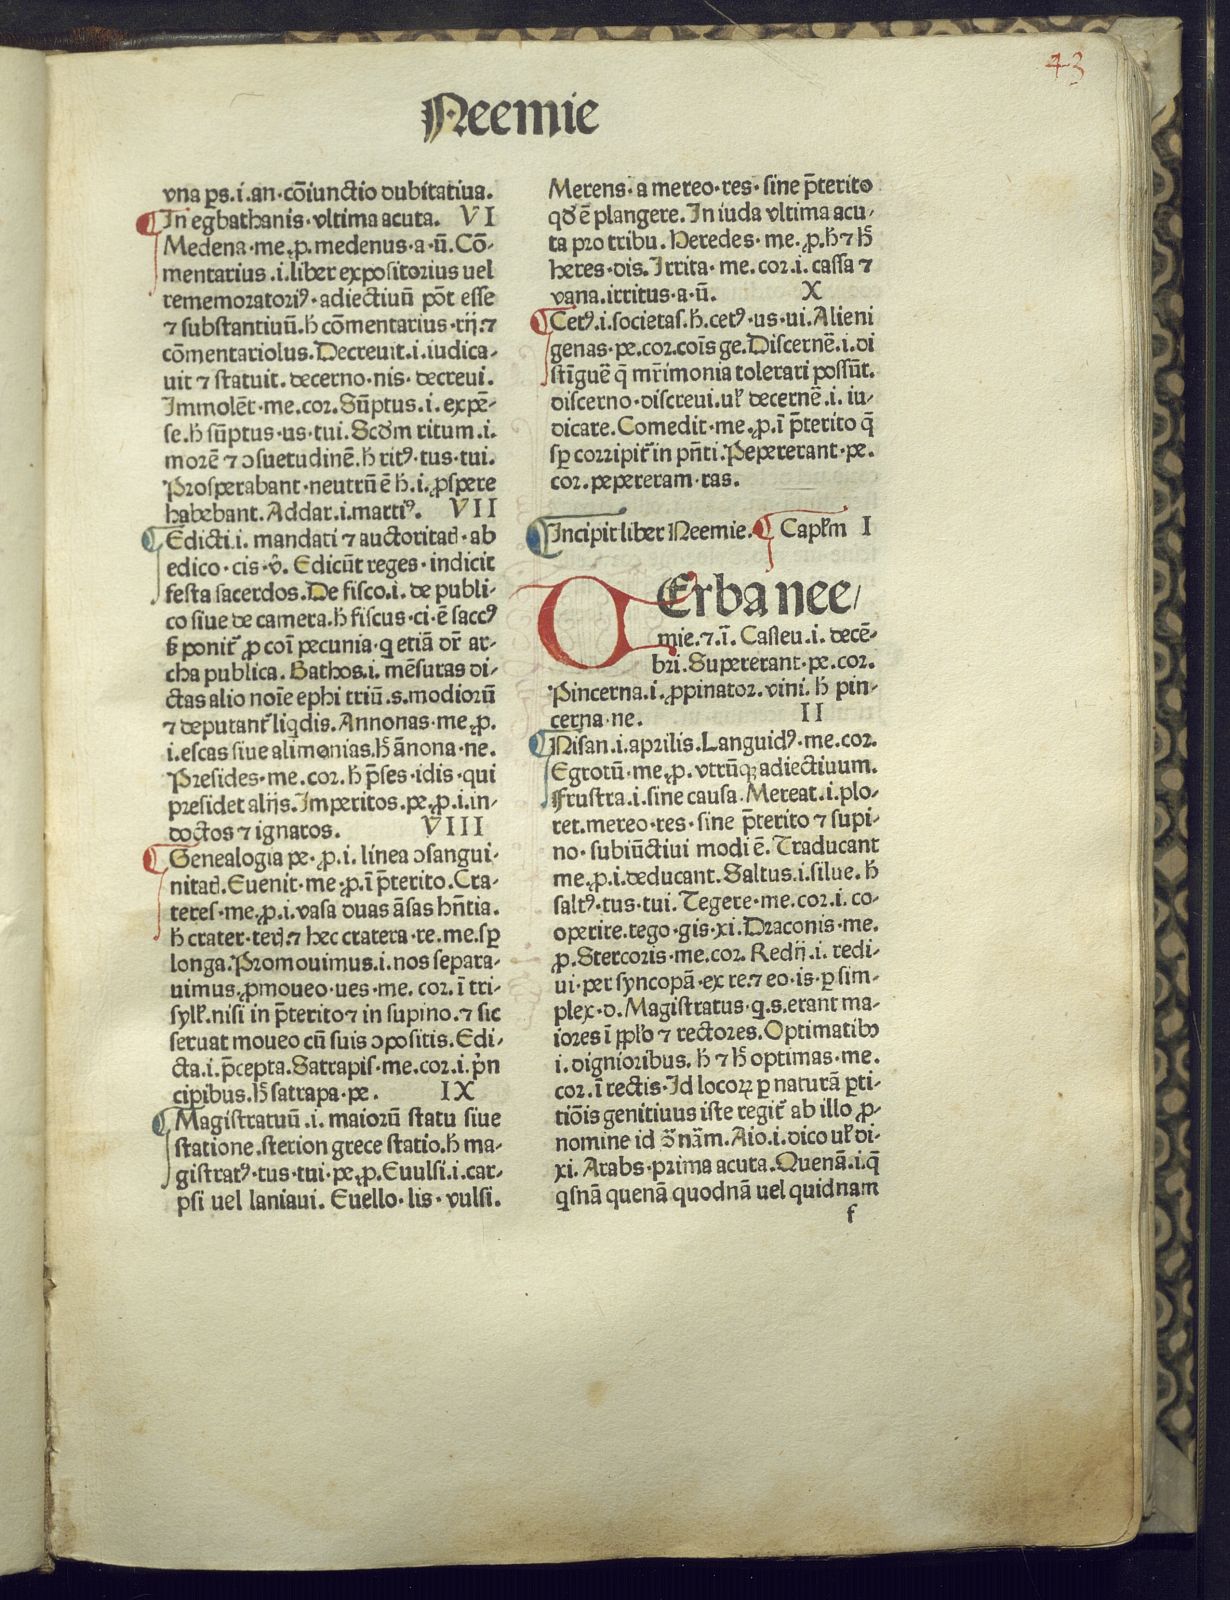 43
Neemie
vna ps.i.an·cōiunctio dubitatiua.
In egbathanis·vltima acuta. VI
Medena·me.ꝓ.medenus·a·ū.Cō-
mentarius.i.liber expositorius uel
rememoratoriꝰ·adiectiuū pōt esse
⁊ substantiuū.ħ cōmentarius·rij.⁊
cōmentariolus.Decreuit.i.iudica-
uit ⁊ statuit.decerno·nis·decreui.
Immolēt·me.cor.Sūptus.i.expē-
se.ħ sūptus·us·tui.Scďm ritum.i.
morē ⁊ ↄsuetudinē.ħ ritꝰ·tus·tui.
Prosperabant·neutrū ē ħ.i.ꝓspere
habebant.Addar.i.martiꝰ. VII
Edicti.i. mandati ⁊ auctoritať·ab
edico·cis·ṽ. Edicūt reges·indicit
festa sacerdos.De fisco.i.de publi-
co siue de camera.ħ fiscus·ci·ē saccꝰ
ß poniť ꝓ coī pecunia·q etiā dr̄ ar-
cha publica.Bathos.i.mēsuras di-
ctas alio noīe ephi triū.s.modiorū
⁊ deputanť liqdis.Annonas·me.ꝓ.
i.escas siue alimonias.ħ ānona·ne.
Presides·me.cor.ħ p̄ses·idis·qui
presidet alijs.Imperitos.pe.ꝓ.i.in-
doctos ⁊ ignaros. VIII
Genealogia pe·ꝓ.i.linea ↄsangui-
nitať.Euenit·me.ꝓ.ī p̄terito.Cra-
teres·me.ꝓ.i.vasa duas āsas hn̄tia.
ħ crater·terj.⁊ hec cratera·re.me.sꝑ
longa.Promouimus.i.nos separa-
uimus.ꝓmoueo·ues·me.cor.ī tri-
syll'.nisi in p̄terito ⁊ in supino.⁊ sic
seruat moueo cū suis ↄpositis.Edi-
cta.i.p̄cepta.Satrapis·me.cor.i.p̓n
cipibus.ħ satrapa·pe. IX
Magistratuū.i. maiorū statu siue
statione.sterion grece statio.ħ ma-
gistratꝰ·tus·tui·pe.ꝓ.Euulsi.i.car-
psi uel laniaui. Euello·lis·vulsi.
Merens·a mereo·res·sine p̄terito
qđ ē plangere.In iuda vltima acu-
ta pro tribu.Heredes·me.ꝓ.ħ ⁊ ħ
heres·dis.Irrita·me.cor.i.cassa ⁊
vana.irritus·a·ū. X
Cetꝰ.i.societas.ħ.cetꝰ·us·ui.Alieni
genas·pe.cor.coīs ge.Discernē.i.di
stīguē q̄ mr̄imonia tolerari possūt.
discerno·discreui.ul' decernē.i. iu-
dicare.Comedit·me.ꝓ.ī p̄terito q̄
sꝑ corripiť in pn̄ti.Pepererant·pe.
cor.pepereram·ras.
Incipit liber Neemie. Capl'm I
VErba nee/
mie.⁊.ī. Casleu.i. decē-
bri.Supererant·pe.cor.
Pincerna.i.ꝓpinator.vini.ħ pin-
cerna·ne. II
Nisan.i.aprilis.Languidꝰ·me.cor.
Egrotū·me.ꝓ.vtrūqꝫ adiectiuum.
Frustra.i.sine causa.Mereat.i.plo-
ret.mereo·res·sine p̄terito ⁊ supi-
no·subiūctiui modi ē.Traducant
me.ꝓ.i.deducant.Saltus.i.silue.ħ
saltꝰ·tus·tui.Tegere·me.cor.i.co-
operire.tego·gis·xi.Draconis·me.
ꝓ.Stercoris·me.cor.Redij.i.redi-
ui·per syncopā·ex re.⁊ eo·is·ꝑ sim-
plex·d.Magistratus·q.s.erant ma-
iores ī ppl'o ⁊ rectores.Optimatibꝰ
i.dignioribus.ħ ⁊ ħ optimas·me.
cor.ī rectis.Id locoꝝ ꝑ naturā ꝑti-
tiōis genitiuus iste regiť ab illo ꝓ-
nomine id.Aio.i.dico ul' di-
xi.Arabs·prima acuta.Quenā.i.q̄
qsnā quenā quodnā uel quidnam
f